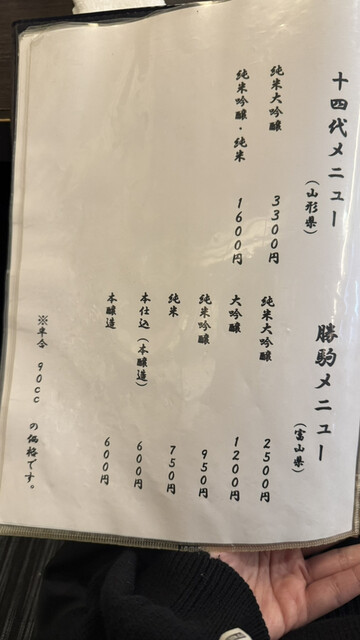 十四代メニュー
（山形県）
純米大吟醸 3300円
純米吟醸・純米 1600円
勝駒メニュー
（富山県）
純米大吟醸 2500円
大吟醸 1200円
純米吟醸 950円
純米 750円
本仕込（本醸造） 600円
本醸造 600円
※半合 90cc の価格です。